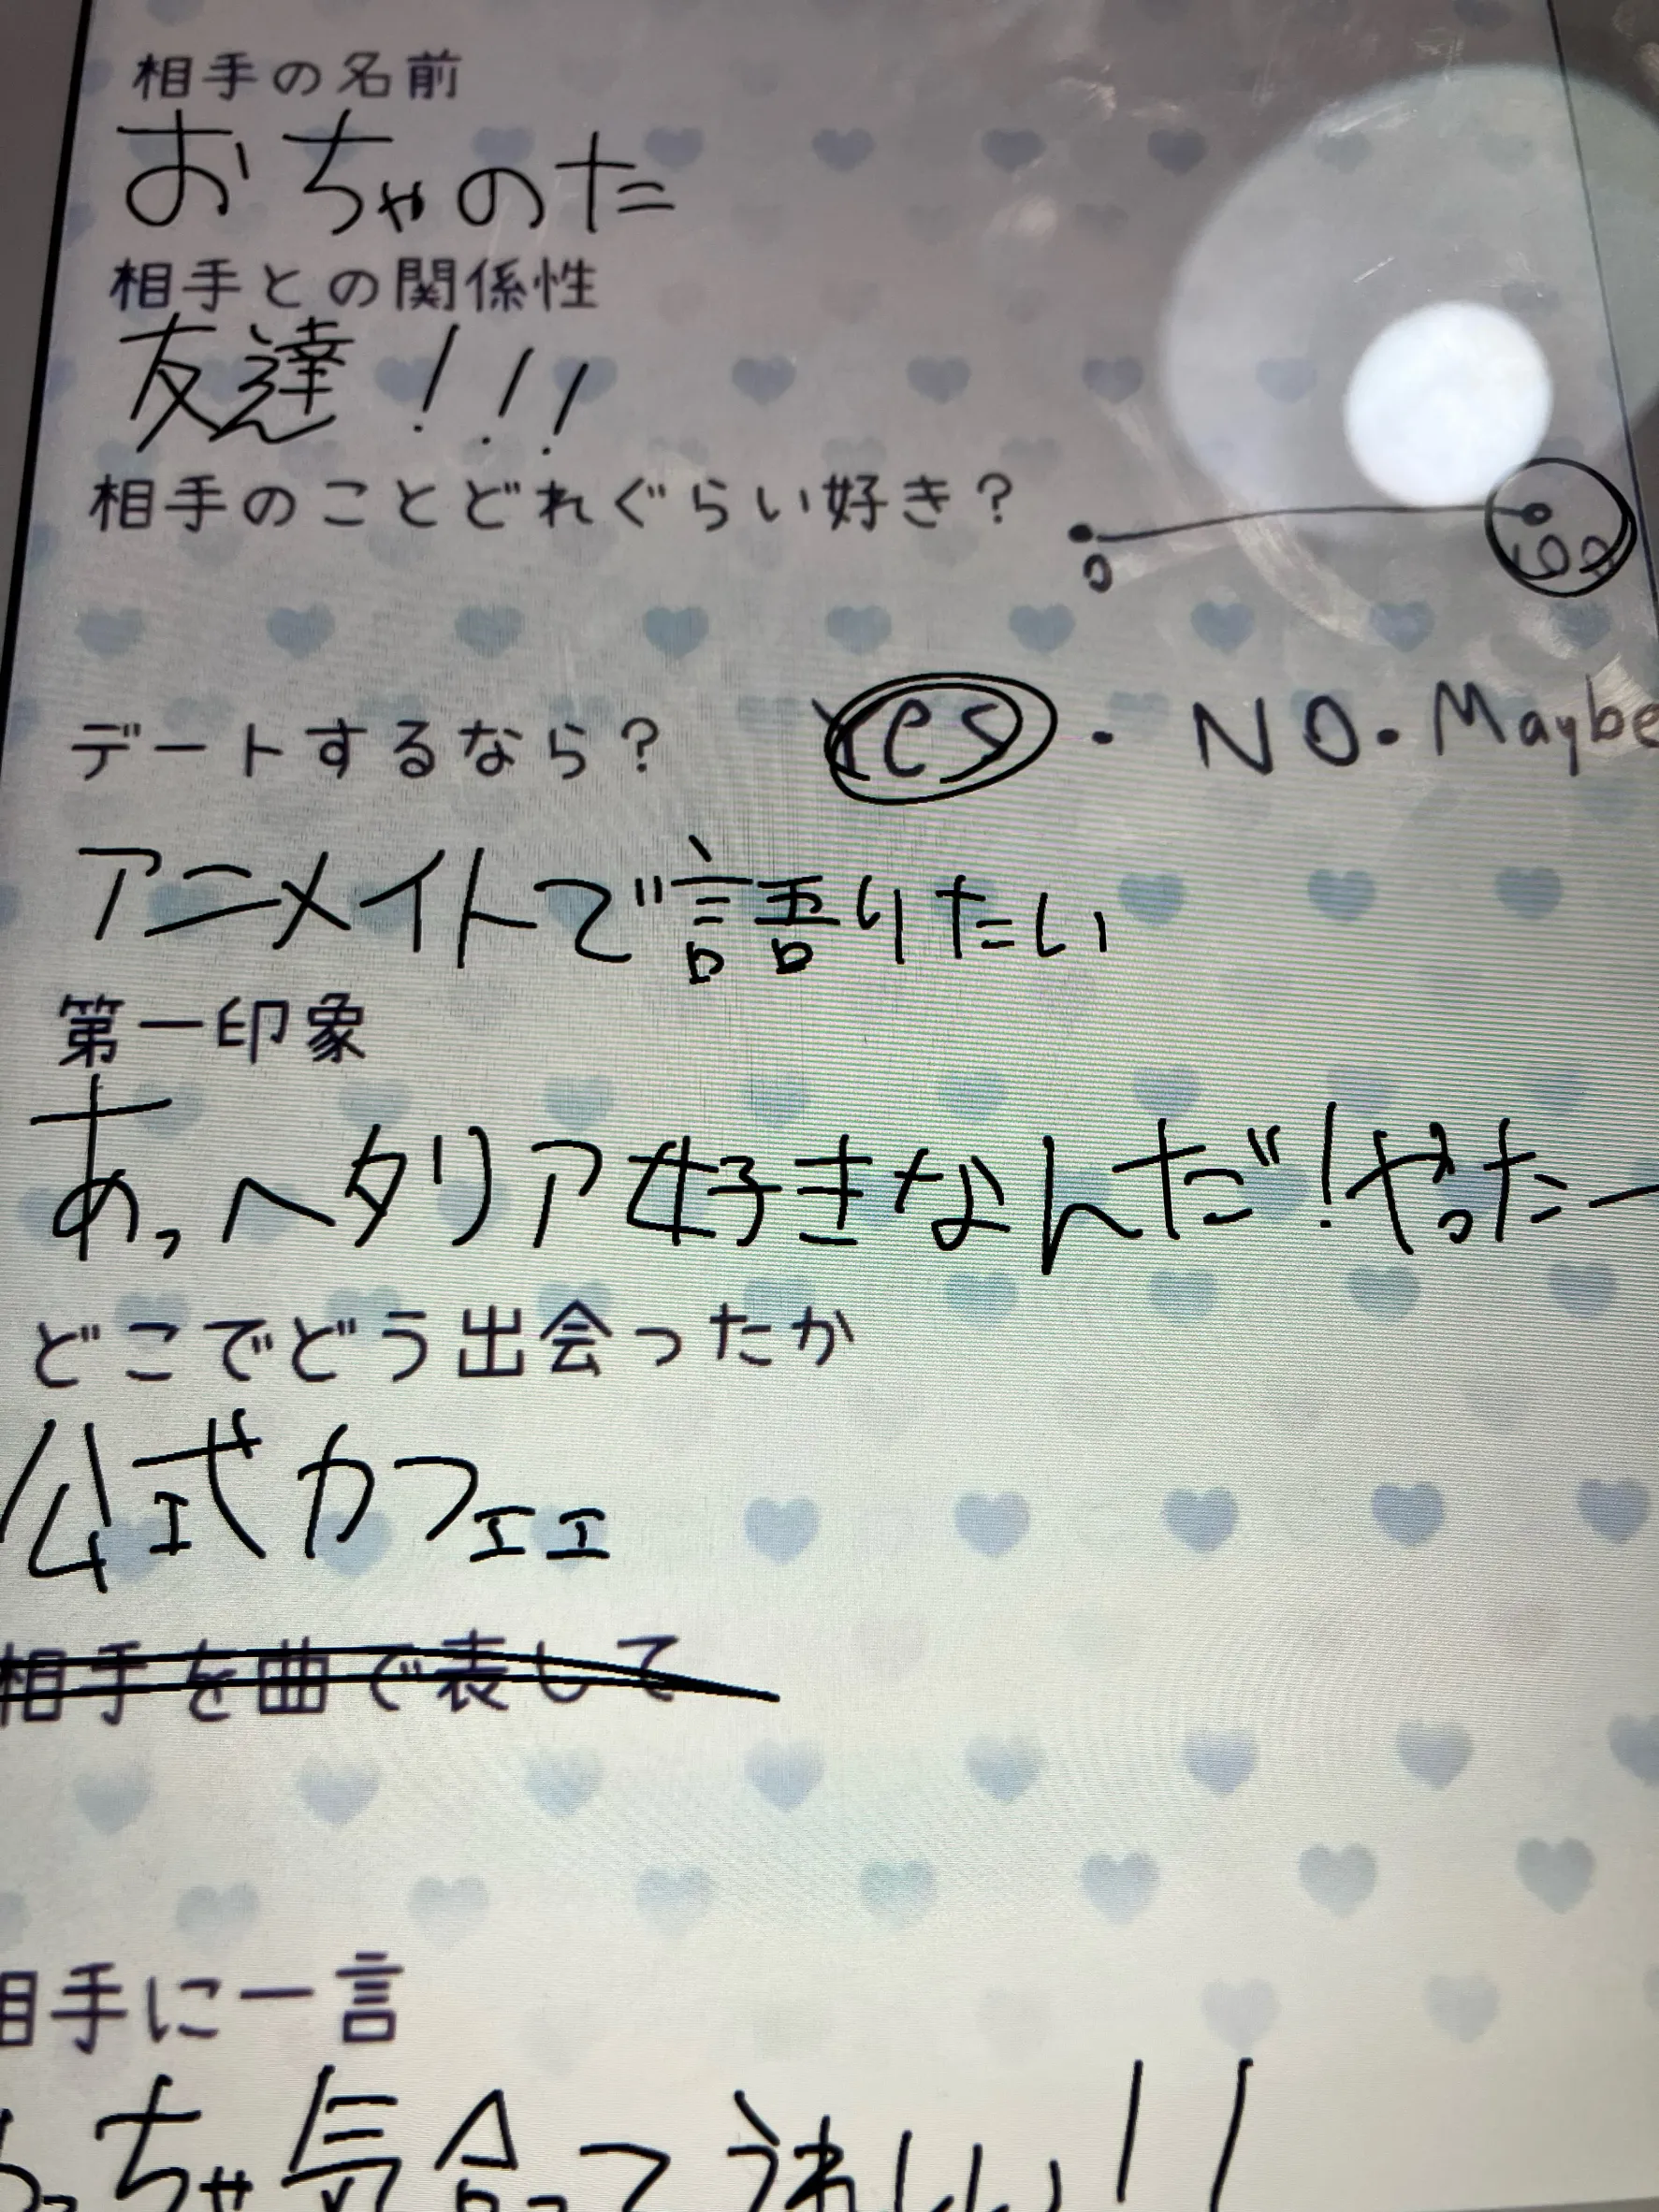 相手の名前
おちゃのた
相手との関係性
友達!!!
相手のことどれぐらい好き?
0 100
デートするなら? Yes・NO・Maybe
アニメイトで語りたい
第一印象
あっ、ヘタリア好きなんだ!やったー
どこでどう出会ったか
公式カフェェ
相手を曲で表して
相手に一言
っちゃ気合ってうれしい!!